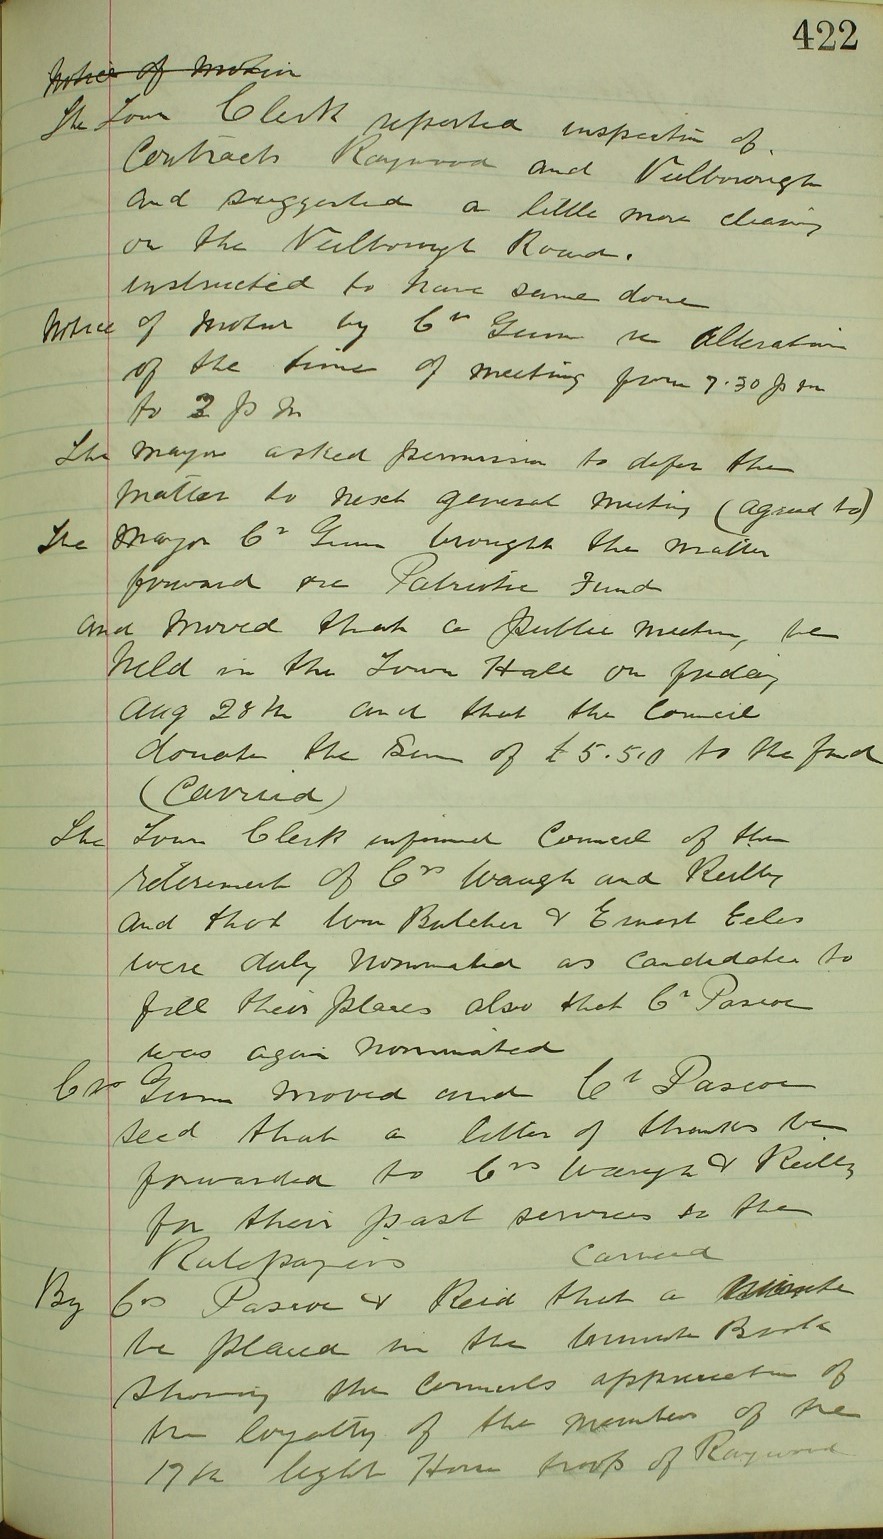 422
Notice of Motion
The Town Clerk reported inspection of
Contracts Raywood and Neilborough
and suggested a little more clearing
on the Neilborough Road.
instructed to have same done
Notice of Motion by Cr Gunn re Alteration
of the time of meeting from 7.30 p m
to 2 p m
The Mayor asked permission to defer the
matter to next general meeting (agreed to)
The Mayor Cr Gunn brought the matter
forward re Patriotic Fund
and moved that a public meeting be
held in the Town Hall on friday
Aug 28th and that the Council
donate the Sum of £5.5.0 to the fund
(Carried)
The Town Clerk informed Council of the
retirement of Crs Waugh and Reilly
and that Wm Butcher & Ernest Eeles
were duly nominated as candidates to
fill their places also that Cr Pascoe
was again nominated
Crs Gunn moved and Cr Pascoe
secd that a letter of thanks be
forwarded to Crs Waugh & Reilly
for their past services to the
Ratepayers Carried
By Crs Pascoe & Reid that a minute
be placed in the minute Book
showing the Councils appreciation of
the loyalty of the members of the
17th light Horse troop of Raywood